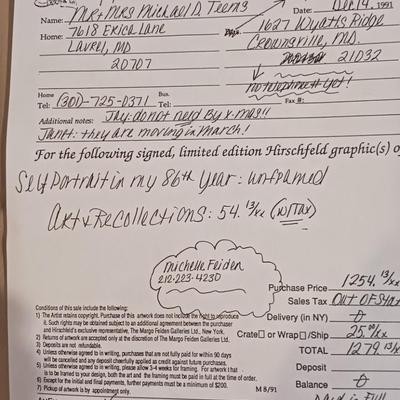 Name: Mr + Mrs Michael D. Teems Date: Dec 14, 1991
Home: 7618 Erica Lane 1627 Wyatts Ridge
Laurel, MD Crownsville, MD.
20707 21032
No telephone yet!
Home Tel: (301)-725-0371 Bus. Tel: Fax #:
Additional notes: Jay: do not need by x-mas!!
Janet: they are moving in March!
For the following signed, limited edition Hirschfeld graphic(s) o
Self Portrait in my 86th Year: unframed
Art & Recollections: 54. 13/xx (w/Tax)
Michelle Feiden
212-223-4230
Purchase Price 1254. 13/xx
Sales Tax Out of Sta
Delivery (in NY) 0
Crate☐ or Wrap☐/Ship 25. 00/xx
TOTAL 1279. 13/xx
Deposit
Balance 0
Paid in Full
Conditions of this sale include the following:
1) The Artist retains copyright. Purchase of this artwork does not include the right to reproduce
it. Such rights may be obtained subject to an additional agreement between the purchaser
and Hirschfeld's exclusive representative, The Margo Feiden Galleries Ltd., New York.
2) Returns of artwork are accepted only at the discretion of The Margo Feiden Galleries Ltd.
3) Deposits are not refundable.
4) Unless otherwise agreed to in writing, purchases that are not fully paid for within 90 days
will be cancelled and any deposit cheerfully applied as credit against future purchases.
5) Unless otherwise agreed to in writing, please allow 3-4 weeks for framing. For artwork that
is to be framed to your design, both the art and the framing must be paid in full at the time of order.
6) Except for the initial and final payments, further payments must be a minimum of $200.
7) Pickup of artwork is by appointment only. M 8/91